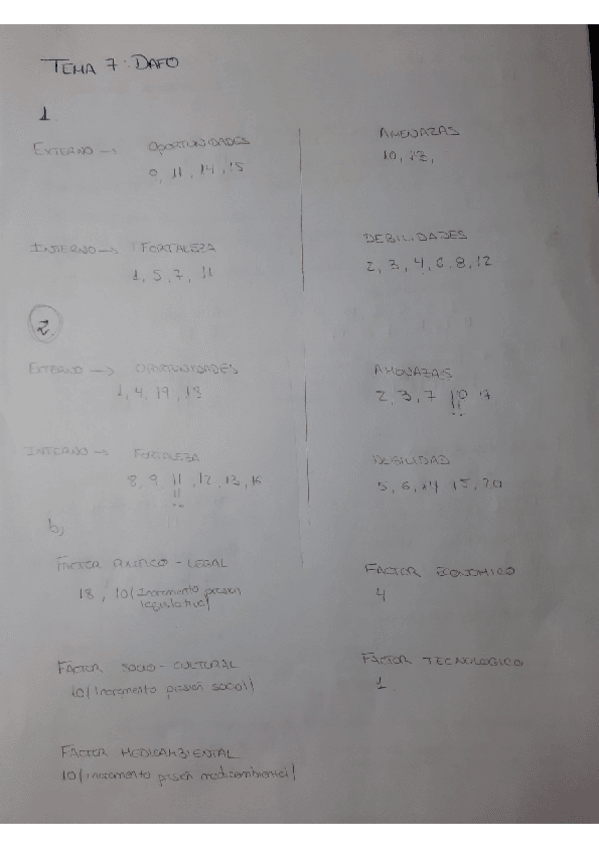 TEMA 7: DAFO
1.
EXTERNO → OPORTUNIDADES AMENAZAS
9, 11, 14, 15 10, 12,
INTERNO → FORTALEZA DEBILIDADES
1, 5, 7, 11 2, 3, 4, 6, 8, 12
2.
EXTERNO → OPORTUNIDADES AMENAZAS
1, 4, 19, 18 2, 3, 7 10 17
INTERNO → FORTALEZA DEBILIDAD
8, 9 11, 12, 13, 16 5, 6, 14 15, 20
b)
FACTOR POLITICO - LEGAL FACTOR ECONOMICO
18, 10 (Incremento presión 4
legislativa)
FACTOR SOCIO - CULTURAL FACTOR TECNOLOGICO
10 (Incremento presión social) 1.
FACTOR MEDIOAMBIENTAL
10 (incremento presión medioambiental)